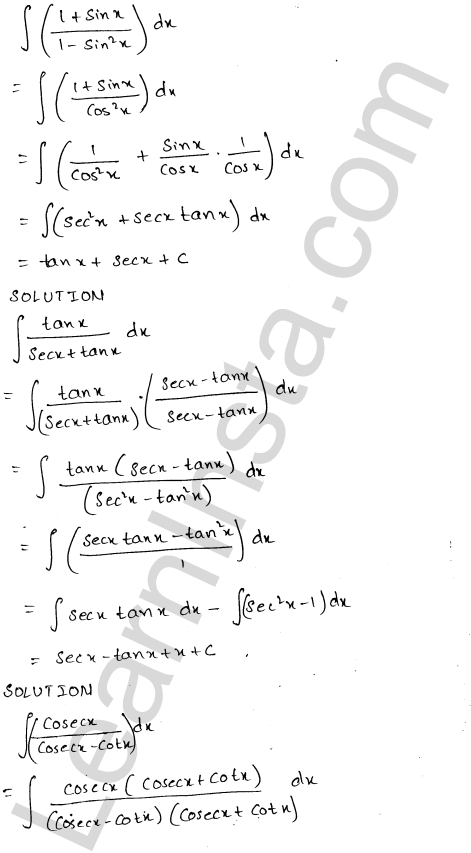 ∫ ( (1 + sin x) / (1 - sin²x) ) dx
= ∫ ( (1 + sin x) / cos²x ) dx
= ∫ ( 1/cos²x + sin x/cos x · 1/cos x ) dx
= ∫ (sec²x + sec x tan x) dx
= tan x + sec x + C
SOLUTION
∫ tan x / (sec x + tan x) dx
= ∫ tan x / (sec x + tan x) · ( (sec x - tan x) / (sec x - tan x) ) dx
= ∫ tan x (sec x - tan x) / (sec²x - tan²x) dx
= ∫ ( (sec x tan x - tan²x) / 1 ) dx
= ∫ sec x tan x dx - ∫ (sec²x - 1) dx
= sec x - tan x + x + C
SOLUTION
∫ ( cosec x / (cosec x - cot x) ) dx
= ∫ cosec x (cosec x + cot x) / (cosec x - cot x) (cosec x + cot x) dx
LearnInsta.com